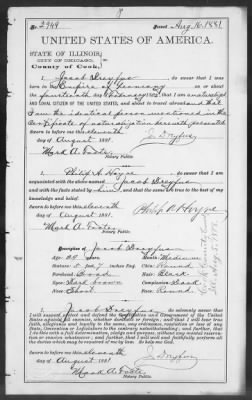 No 2949 Issued Aug. 16. 1881
UNITED STATES OF AMERICA.
STATE OF ILLINOIS,
CITY OF CHICAGO,
County of Cook.
I, Jacob Dreyfus, do swear that I was
born in Empire of Germany on or about
the fourteenth day of
and LOYAL CITIZEN OF THE UNITED STATES, and about to travel abroad and that
I am the identical person mentioned in the
certificate of naturalization herewith presented
Sworn to before me, this eleventh
day of August 1881. J. Dreyfus
Mark A. Foote,
Notary Public.
I, Philip A. Hoyne, do swear that I am
acquainted with the above named Jacob Dreyfus
and with the facts stated by him, and that the same are true to the best of my
knowledge and belief.
Sworn to before me, this eleventh
day of August 1881. Philip A. Hoyne
Mark A. Foote,
Notary Public.
Description of Jacob Dreyfus
Age: Mouth: Medium
Stature: 5 feet, 7 inches Eng. Chin: Round
Forehead: Broad Hair: Black
Eyes: Dark brown Complexion: Dark
Nose: Short Face: Round
I, Jacob Dreyfus, do solemnly swear that
I will support, protect and defend the Constitution and Government of the United
States against all enemies, whether domestic or foreign; and that I will bear true
faith, allegiance and loyalty to the same, any ordinance, resolution or law of any
State, Convention or Legislature to the contrary notwithstanding; and further, that
I do this with a full determination, pledge and purpose, without any mental reservation
or evasion whatsoever; and further, that I will well and faithfully perform all
the duties which may be required of me by law. So help me God.
Sworn to before me, this eleventh
day of August 1881 J. Dreyfus
Mark A. Foote,
Notary Public.